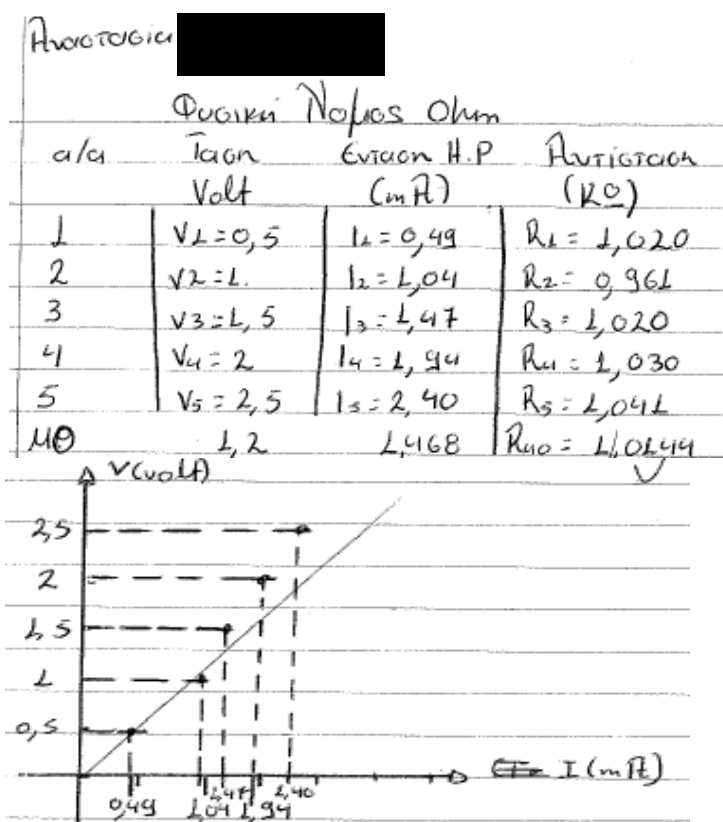 Αναστασία
Φυσική Νόμος Ohm
α/α Τάση Ένταση Η.Ρ Αντίσταση
Volt (mA) (KΩ)
1 V1=0,5 I1=0,49 R1=1,020
2 V2=1. I2=1,04 R2=0,961
3 V3=1,5 I3=1,47 R3=1,020
4 V4=2 I4=1,94 R4=1,030
5 V5=2,5 I5=2,40 R5=1,041
ΜΘ 1,2 1,468 RμΘ=1,0144
V(volt)
2,5
2
1,5
1
0,5
I(mA)
0,49 1,04 1,47 1,94 2,40